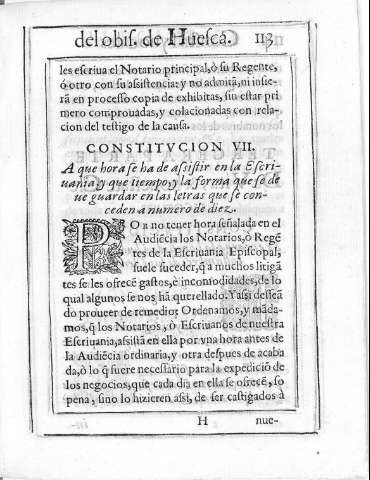 del obis. de Huesca. 113
les escriua el Notario principal, ò su Regente,
ò otro con su asistencia: y no admitã, ni insie-
rã en processo copia de exhibitas, sin estar pri
mero comprouadas, y colacionadas con rela-
cion del testigo de la causa.
CONSTITVCION VII.
A que hora se ha de assistir en la Escri-
uania, y que tiempo, y la forma que se de
ue guardar en las letras que se con-
ceden a numero de diez.
POR no tener hora señalada en el
Audiẽcia los Notarios, ò Regẽ
tes de la Escriuania Episcopal,
suele suceder, q̃ a muchos litigã
tes se les ofrecẽ gastos, è incomodidades, de lo
qual algunos se nos hã querellado. Y assi desseã
do proueer de remedio: Ordenamos, y mãda-
mos, q̃ los Notarios, ò Escriuanos de nuestra
Escriuania, assistã en ella por vna hora antes de
la Audiẽcia ordinaria, y otra despues de acaba
da, ò lo q̃ fuere necessario para la expediciõ de
los negocios, que cada dia en ella se ofrecẽ, so
pena, sino lo hizieren assi, de ser castigados à
H nue-